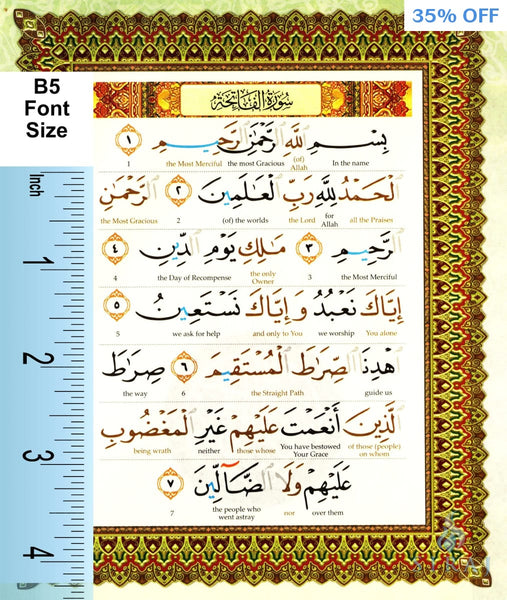 35% OFF
B5
Font
Size
Inch
1
2
3
4
سُورَةُ الفَاتِحَةِ
بِسْمِ اللَّهِ الرَّحْمَٰنِ الرَّحِيمِ ١
In the name (of) Allah the most Gracious the Most Merciful 1
الْحَمْدُ لِلَّهِ رَبِّ الْعَالَمِينَ ٢ الرَّحْمَٰنِ
all the Praises for Allah the Lord (of) the worlds 2 the Most Gracious
الرَّحِيمِ ٣ مَالِكِ يَوْمِ الدِّينِ ٤
the Most Merciful 3 the only Owner the Day of Recompense 4
إِيَّاكَ نَعْبُدُ وَإِيَّاكَ نَسْتَعِينُ ٥
You alone we worship and only to You we ask for help 5
اهْدِنَا الصِّرَاطَ الْمُسْتَقِيمَ ٦ صِرَاطَ
guide us the Straight Path 6 the way
الَّذِينَ أَنْعَمْتَ عَلَيْهِمْ غَيْرِ الْمَغْضُوبِ
of those (people) on whom You have bestowed Your Grace those whose neither being wrath
عَلَيْهِمْ وَلَا الضَّالِّينَ ٧
over them nor the people who went astray 7